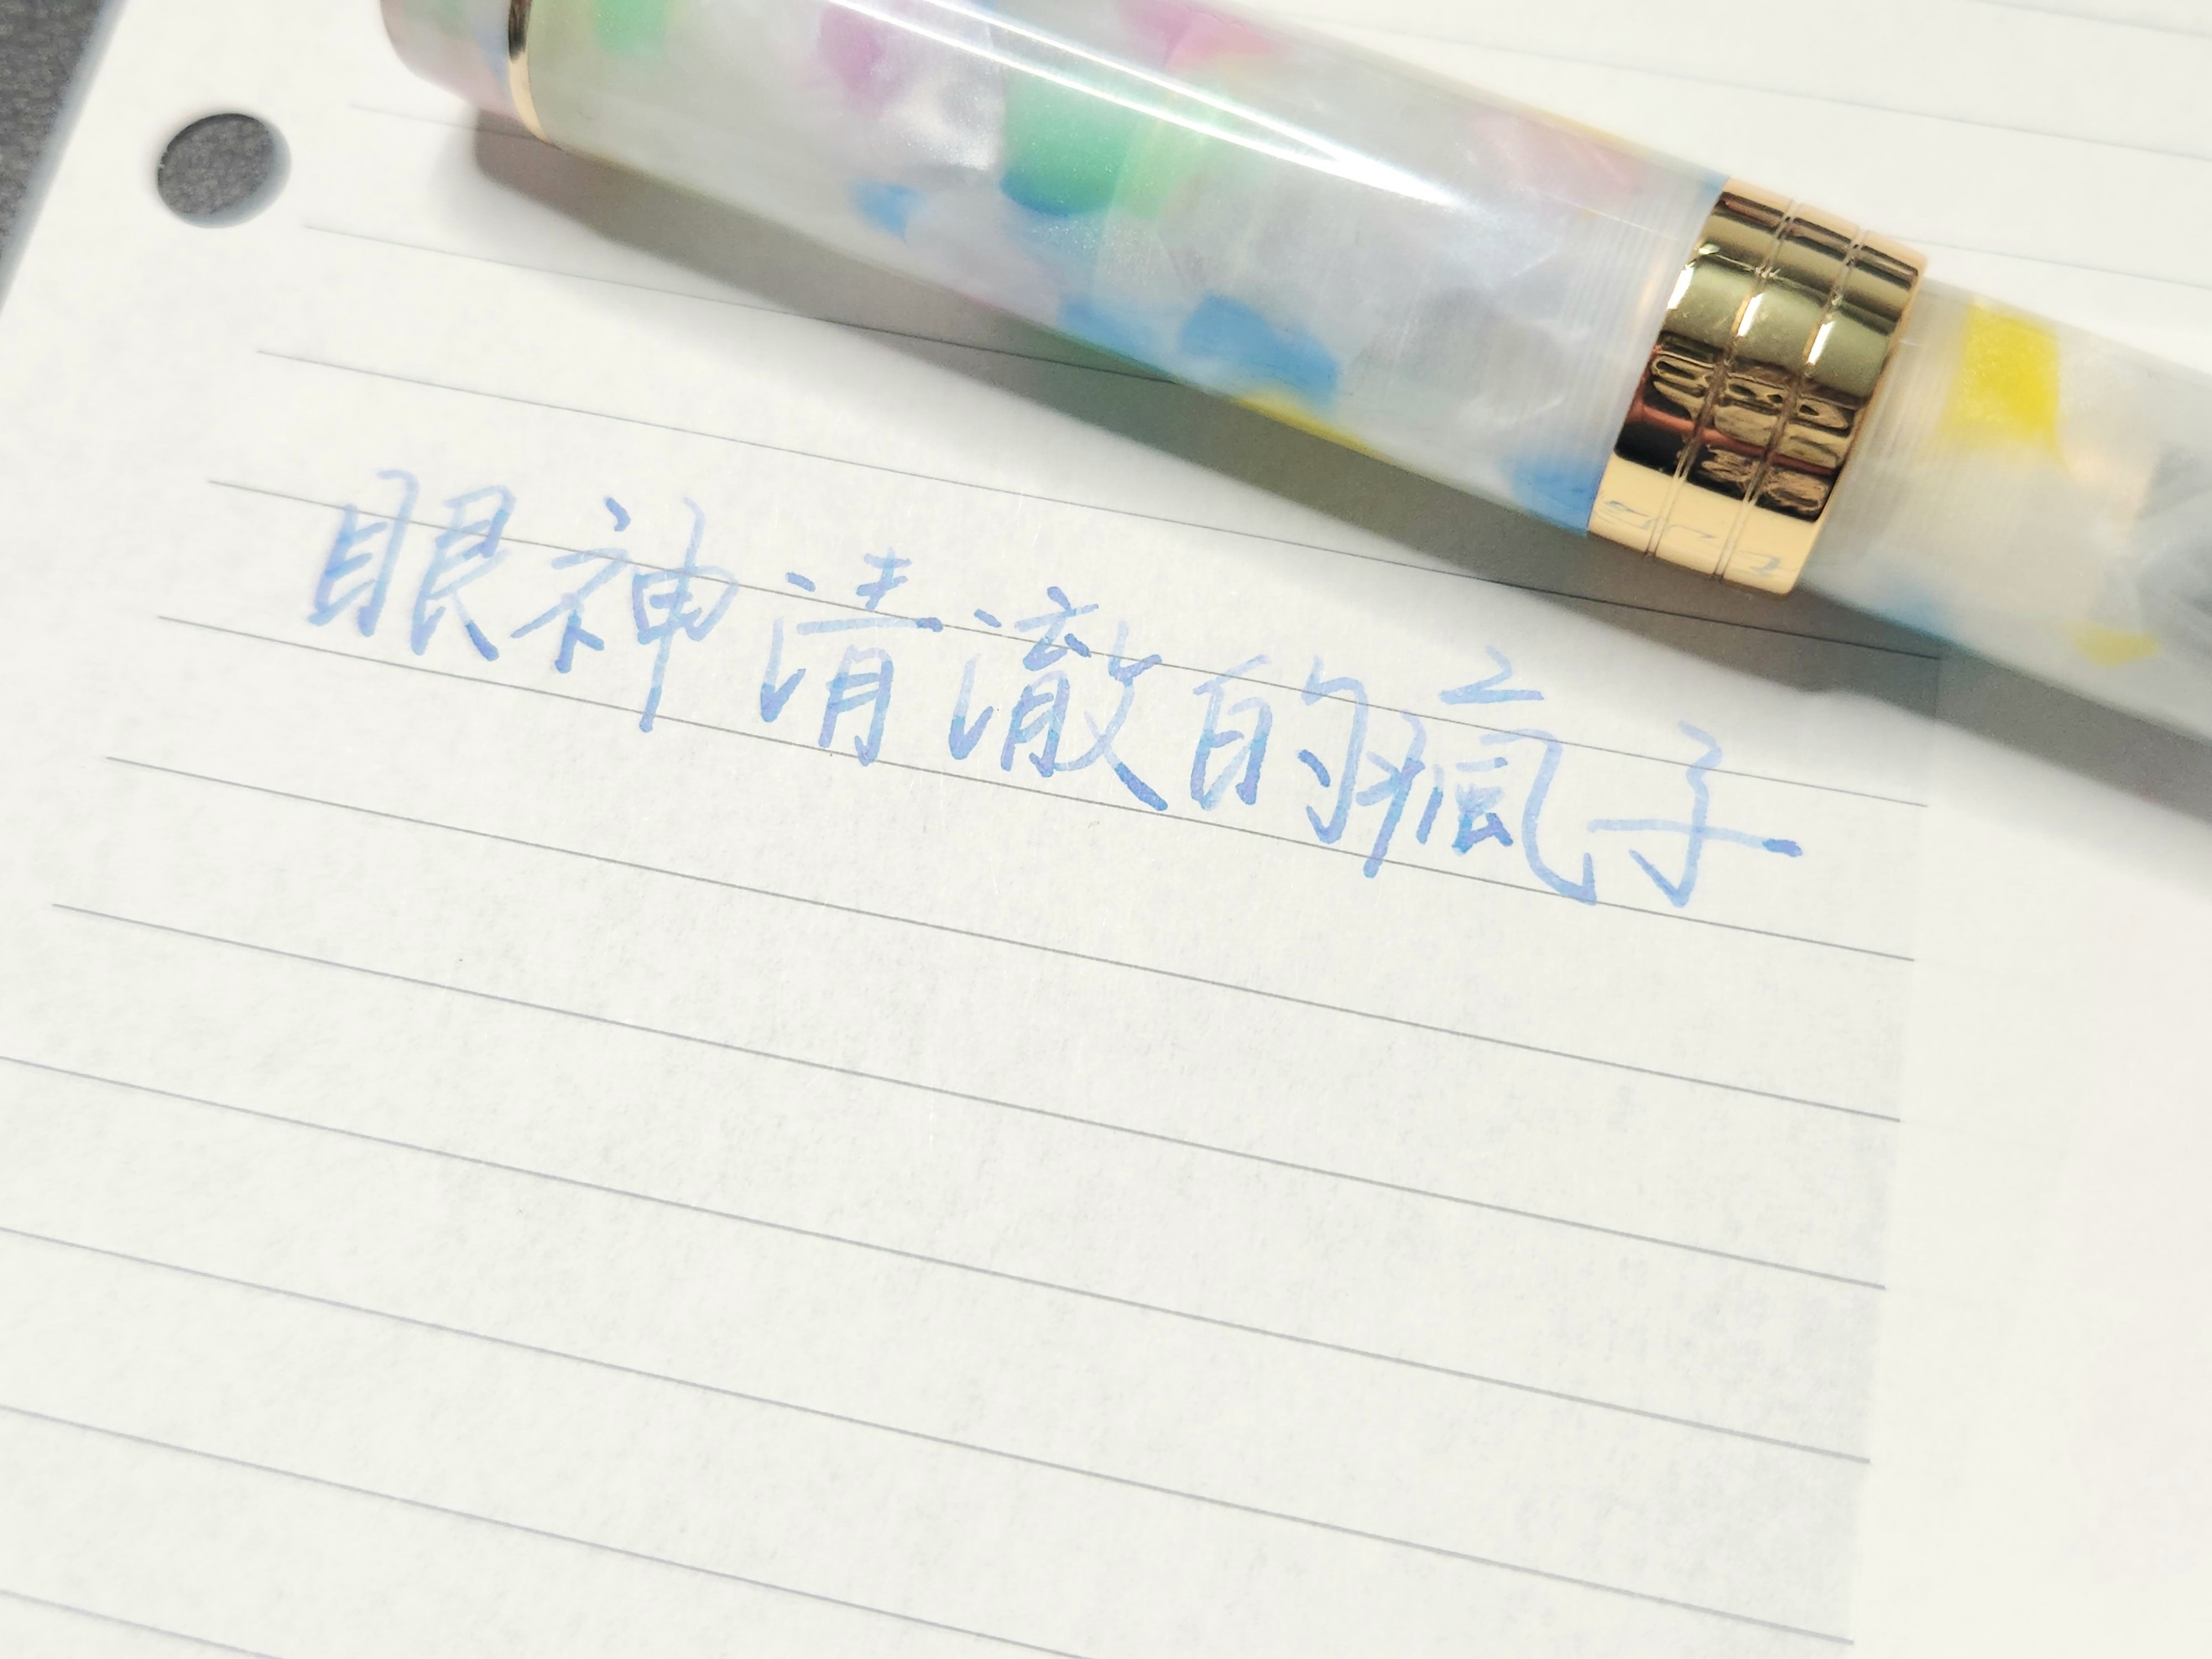 眼神清澈的瘋子